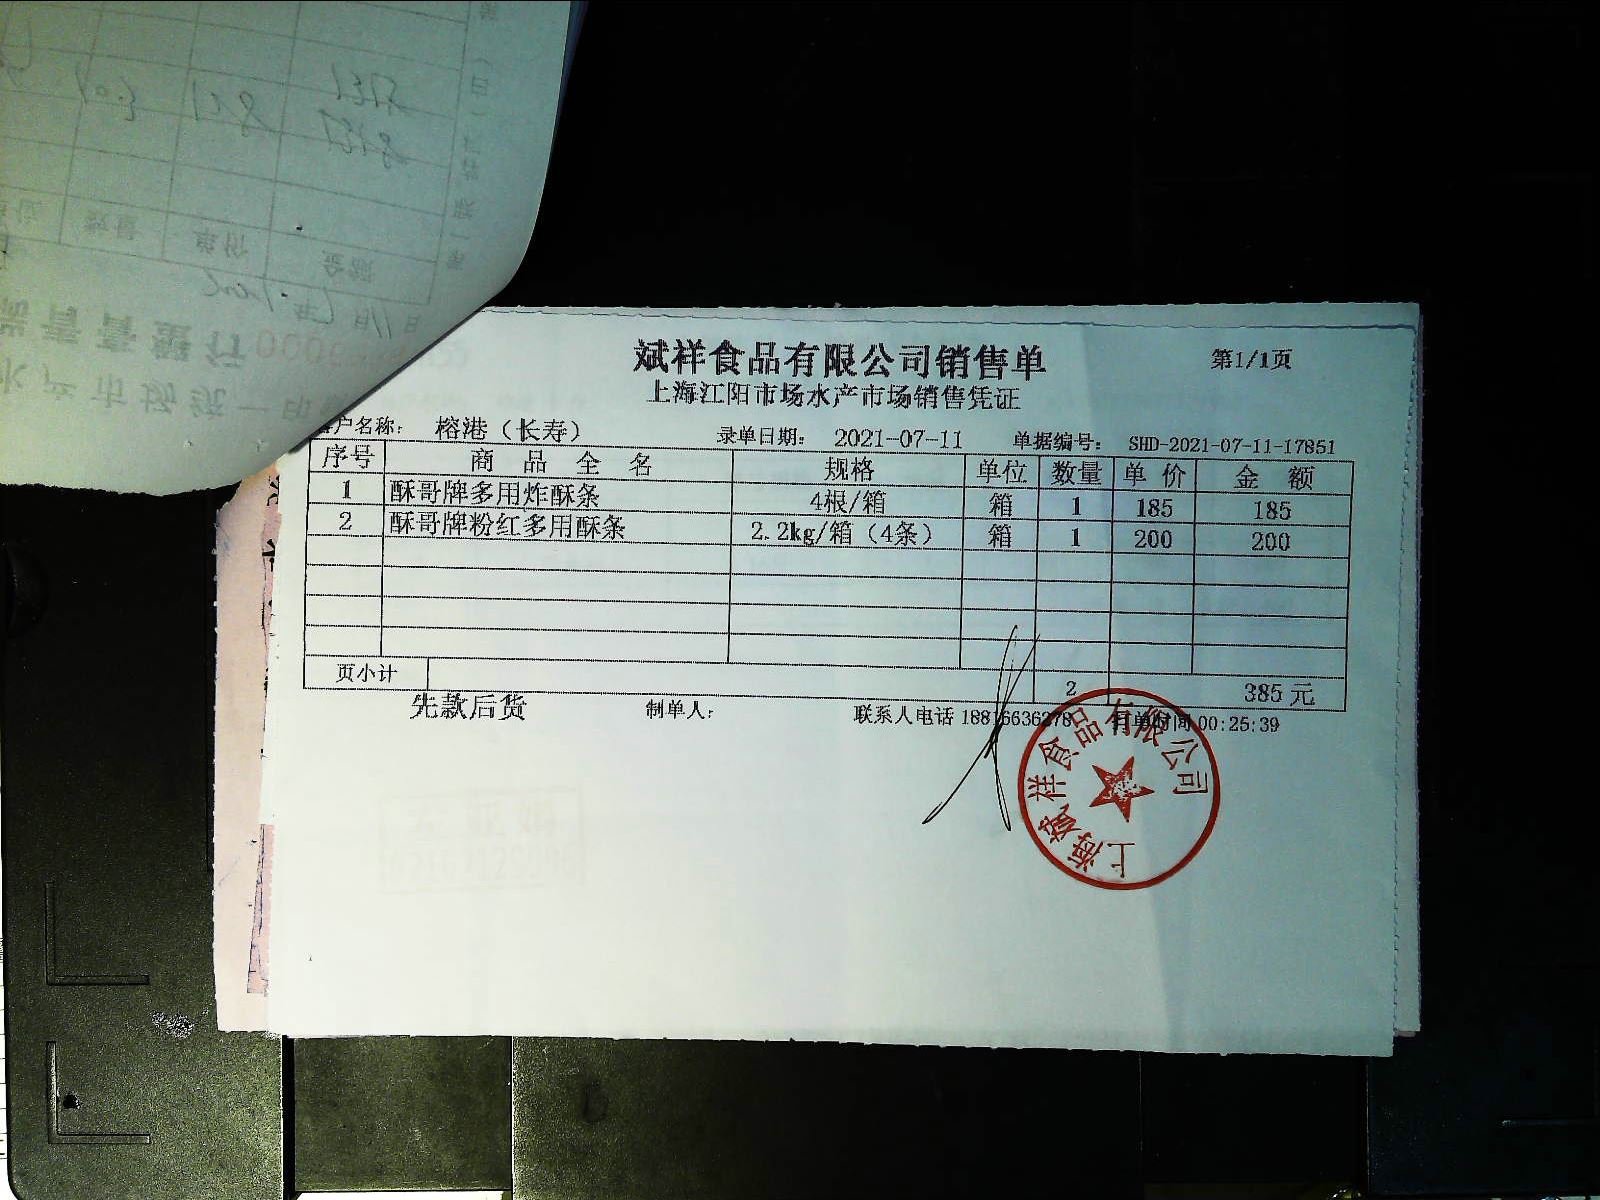 斌祥食品有限公司销售单 第1/1页
上海江阳市场水产市场销售凭证
户名称： 榕港（长寿） 录单日期： 2021-07-11 单据编号： SHD-2021-07-11-17851
序号 商品全名 规格 单位 数量 单价 金额
1 酥哥牌多用炸酥条 4根/箱 箱 1 185 185
2 酥哥牌粉红多用酥条 2.2kg/箱（4条） 箱 1 200 200
页小计 2 385元
先款后货 制单人： 联系人电话 18816636278 打单时间 00:25:39
上海斌祥食品有限公司
数量 单价 金额